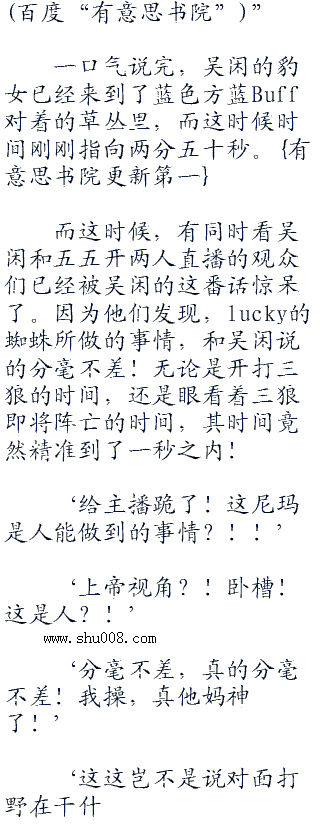 (百度“有意思书院”)”
一口气说完，吴闲的豹
女已经来到了蓝色方蓝Buff
对着的草丛里，而这时候时
间刚刚指向两分五十秒。{有
意思书院更新第一}
而这时候，有同时看吴
闲和五五开两人直播的观众
们已经被吴闲的这番话惊呆
了。因为他们发现，lucky的
蜘蛛所做的事情，和吴闲说
的分毫不差！无论是开打三
狼的时间，还是眼看着三狼
即将阵亡的时间，其时间竟
然精准到了一秒之内！
‘给主播跪了！这尼玛
是人能做到的事情？！！’
‘上帝视角？！卧槽！
这是人？！’
www.shu008.com
‘分毫不差，真的分毫
不差！我操，真他妈神
了！’
‘这这岂不是说对面打
野在干什